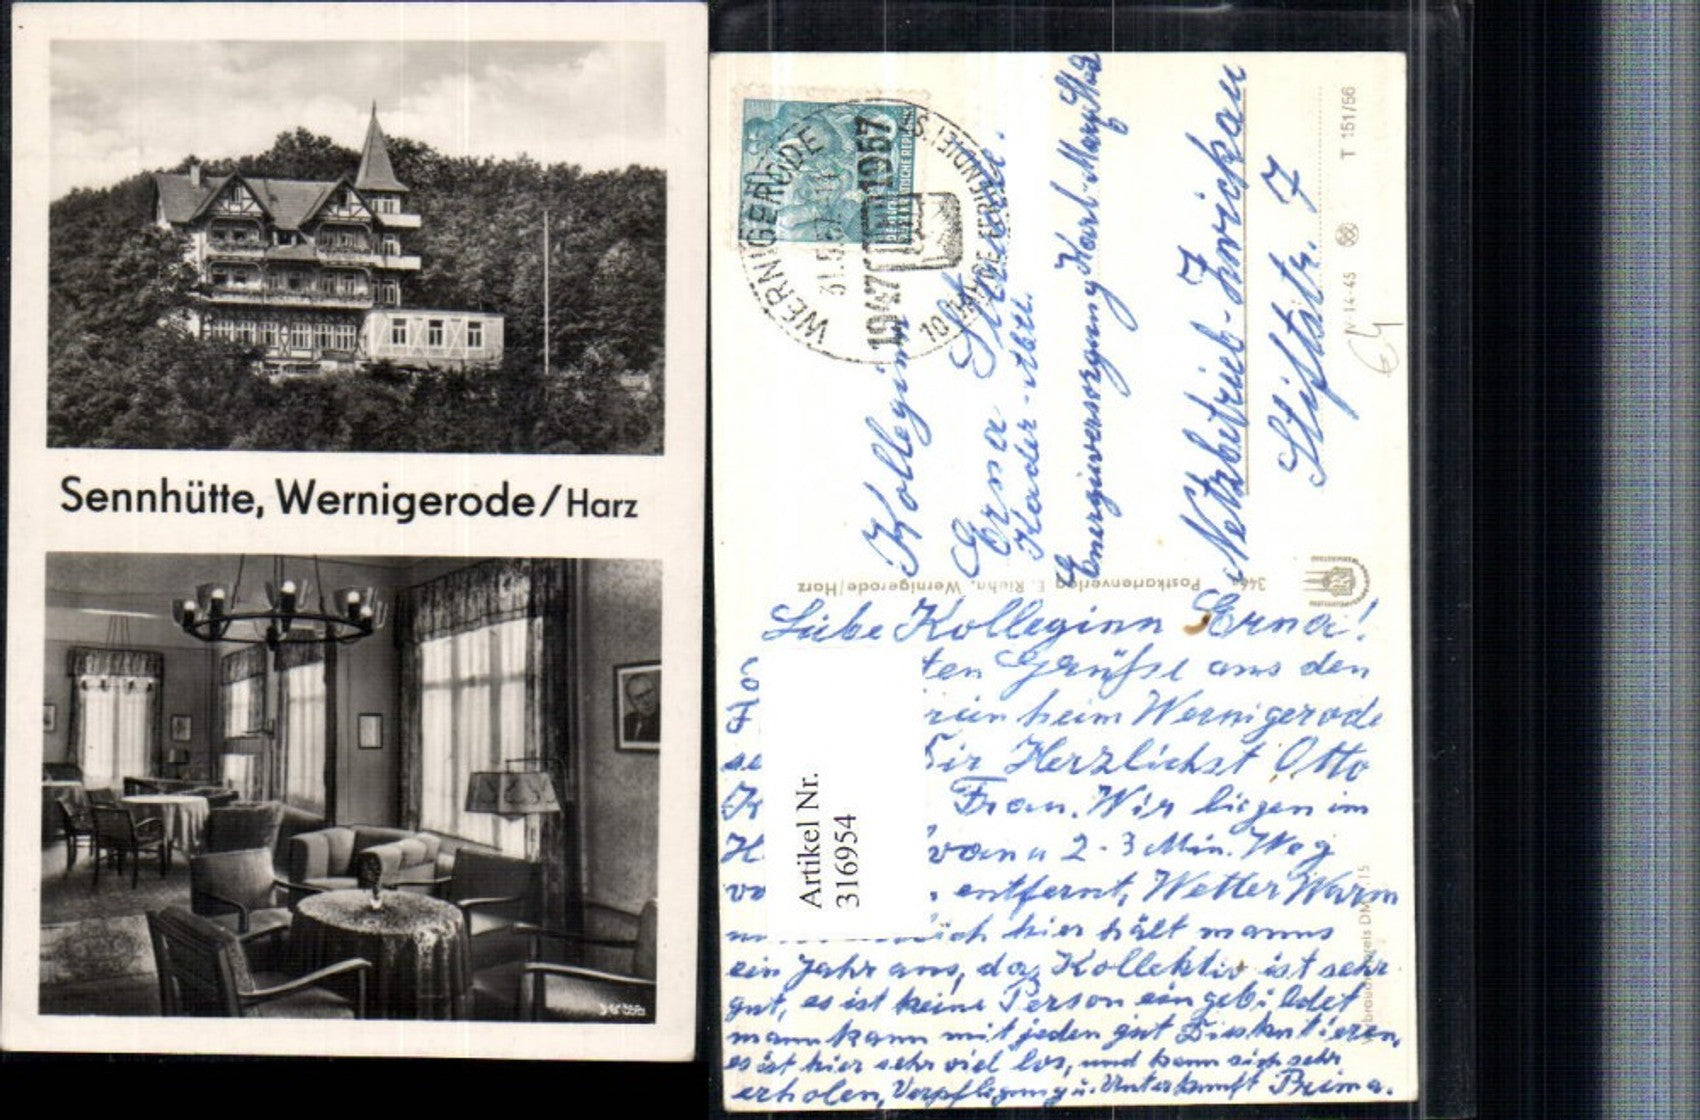 Sennhütte, Wernigerode/Harz
DEUTSCHE DEMOKRATISCHE REPUBLIK
WERNIGERODE
31.5.57
1947 1957
10 JAHRE FERIENDIENST
Kollegin
Erna
Kader-Abtl.
Energieversorgung Karl-Marx-Stadt
Netzbetrieb-Zwickau
Stiftstr. 7
T 151/56
IV 14-45
Postkartenverlag E. Riehn, Wernigerode/Harz
Liebe Kollegin Erna!
ten Grüße aus den
heim Wernigerode
Dir Herzlichst Otto
Frau. Wir liegen im
2-3 Min. Weg
entfernt, Wetter Warm
hier hält manns
ein Jahr aus, das Kollektiv ist sehr
gut, es ist keine Person eingebildet
mann kann mit jeden gut Diskutieren,
es ist hier sehr viel los, und kann sich sehr
erholen, Verpflegung u. Unterkunft Prima.
Artikel Nr.
316954